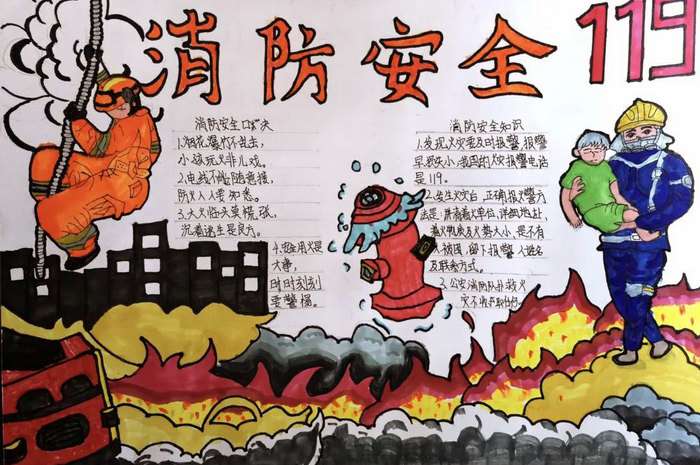 消防安全119
消防安全口诀
1.烟花爆竹不我去,
小孩玩火非儿戏。
2.电线不能随意接,
防火人人要知悉。
3.大火临头莫慌张,
沉着逃生是良方。
4.安全用火是
大事,
时时刻刻
要警惕。
消防安全知识
1.发现火灾要及时报警,报警
早损失小,我国的火灾报警电话
是119。
2.发生火灾后,正确报火警方
法是:讲清着火单位,详细地址,
着火物质及火势大小,是否有
人被困,留下报警人姓名
及联系方式。
3.公安消防队扑救火
灾不收取